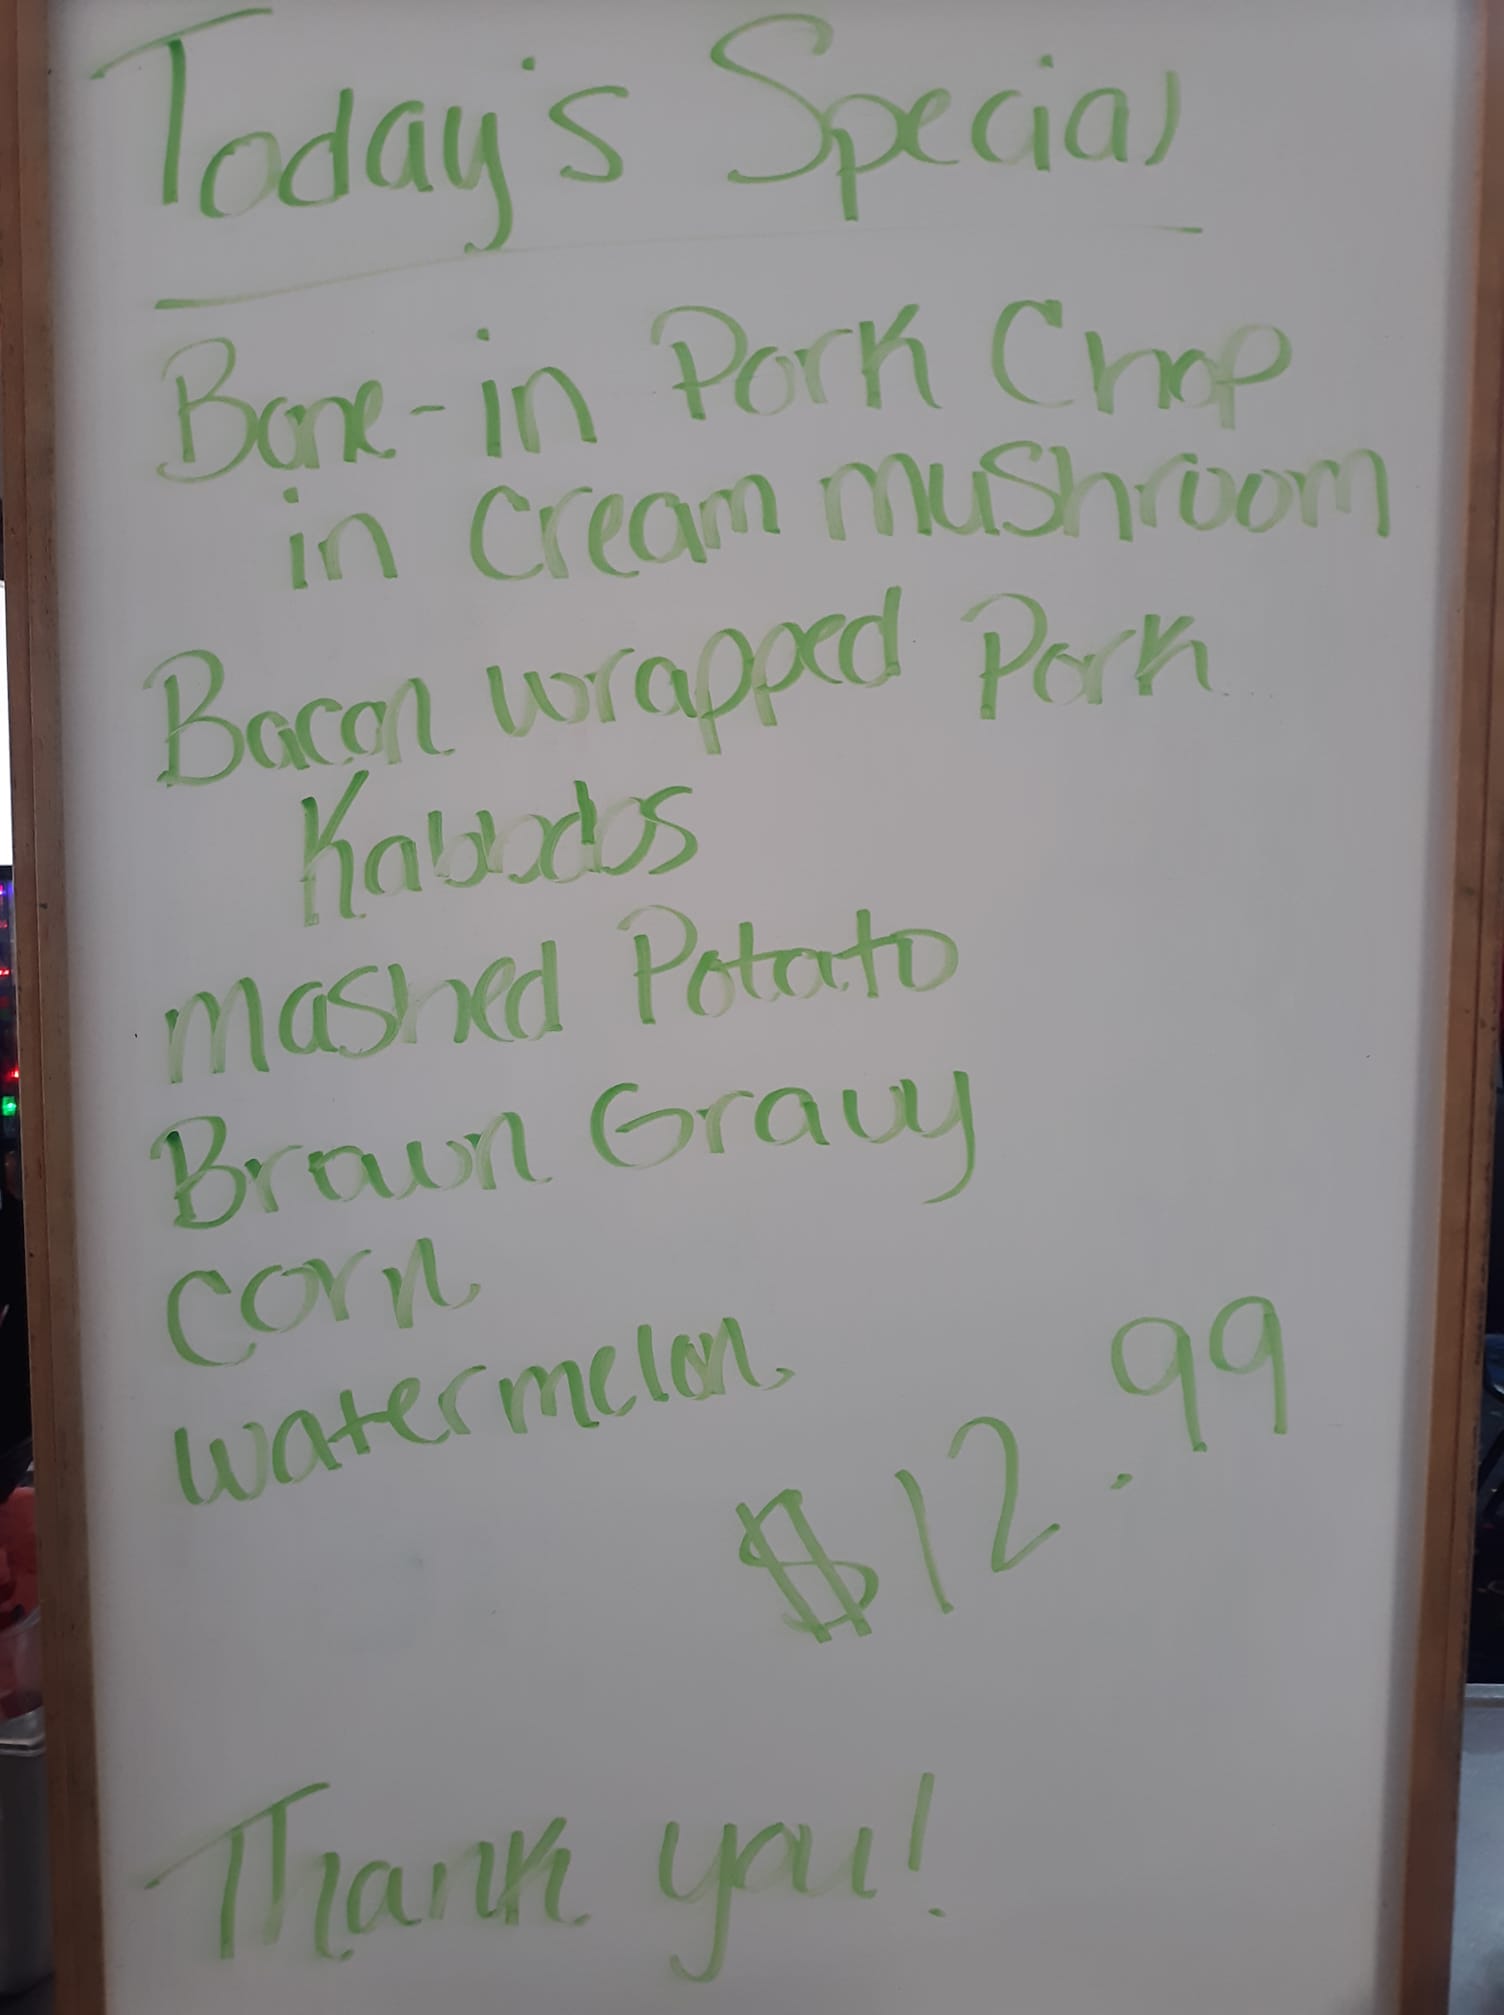 Today's Special
Bone-in Pork Chop
in Cream mushroom
Bacon wrapped Pork
Kabobs
mashed Potato
Brown Gravy
corn
watermelon
$12.99
Thank you!